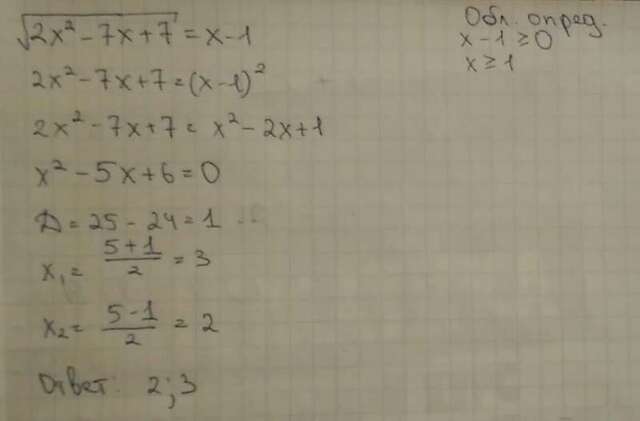 √(2x² - 7x + 7) = x - 1
2x² - 7x + 7 = (x - 1)²
2x² - 7x + 7 = x² - 2x + 1
x² - 5x + 6 = 0
D = 25 - 24 = 1
x₁ = (5 + 1)/2 = 3
x₂ = (5 - 1)/2 = 2
Ответ: 2; 3
Обл. опред.
x - 1 ≥ 0
x ≥ 1